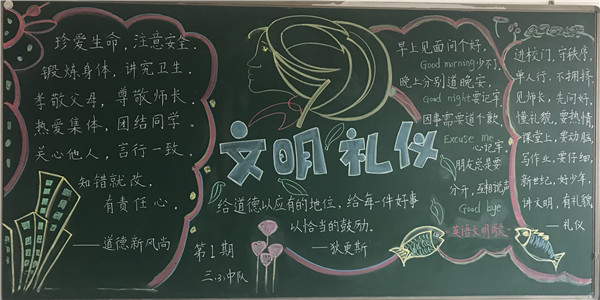 珍爱生命，注意安全.
锻炼身体，讲究卫生.
孝敬父母，尊敬师长.
热爱集体，团结同学.
关心他人，言行一致.
知错就改.
有责任心.
——道德新风尚
文明礼仪
给道德以应有的地位，给每一件好事
以恰当的鼓励.
——狄更斯
第1期
三.3.中队
早上见面问个好，
Good morning 少不了.
晚上分别道晚安，
Good night 要记牢.
因事需要道个歉，
Excuse me
心记牢.
朋友总是要
分开，互相说声
Good bye.
——英语文明用
进校门，守秩序，
单人行，不拥挤，
见师长，先问好，
懂礼貌，要热情，
课堂上，要动脑，
写作业，要仔细，
新世纪，好少年，
讲文明，有礼貌.
——礼仪